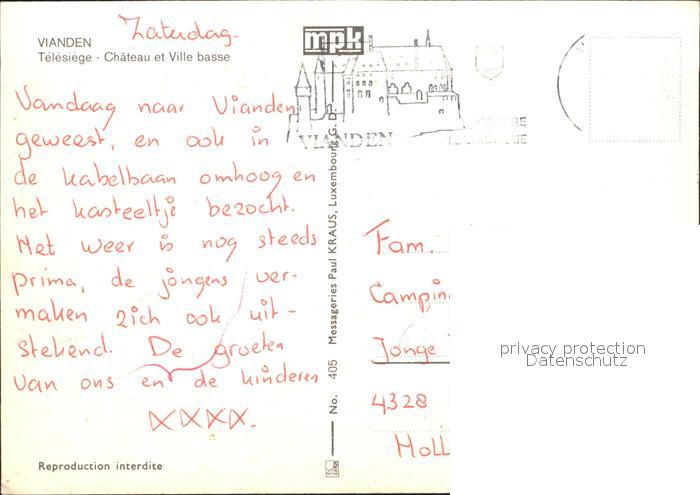 Zaterdag.
VIANDEN
Télésiege - Château et Ville basse
mpk
VIANDEN
Vandaag naar Vianden
geweest, en ook in
de kabelbaan omhoog en
het kasteeltje bezocht.
Het weer is nog steeds
prima, de jongens ver-
maken zich ook uit-
stekend. De groeten
van ons en de kinderen
XXXX.
Reproduction interdite
No. 405 Messageries Paul KRAUS, Luxembourg G. D.
Fam.
Campin
Jonge
4328
Holl
privacy protection
Datenschutz